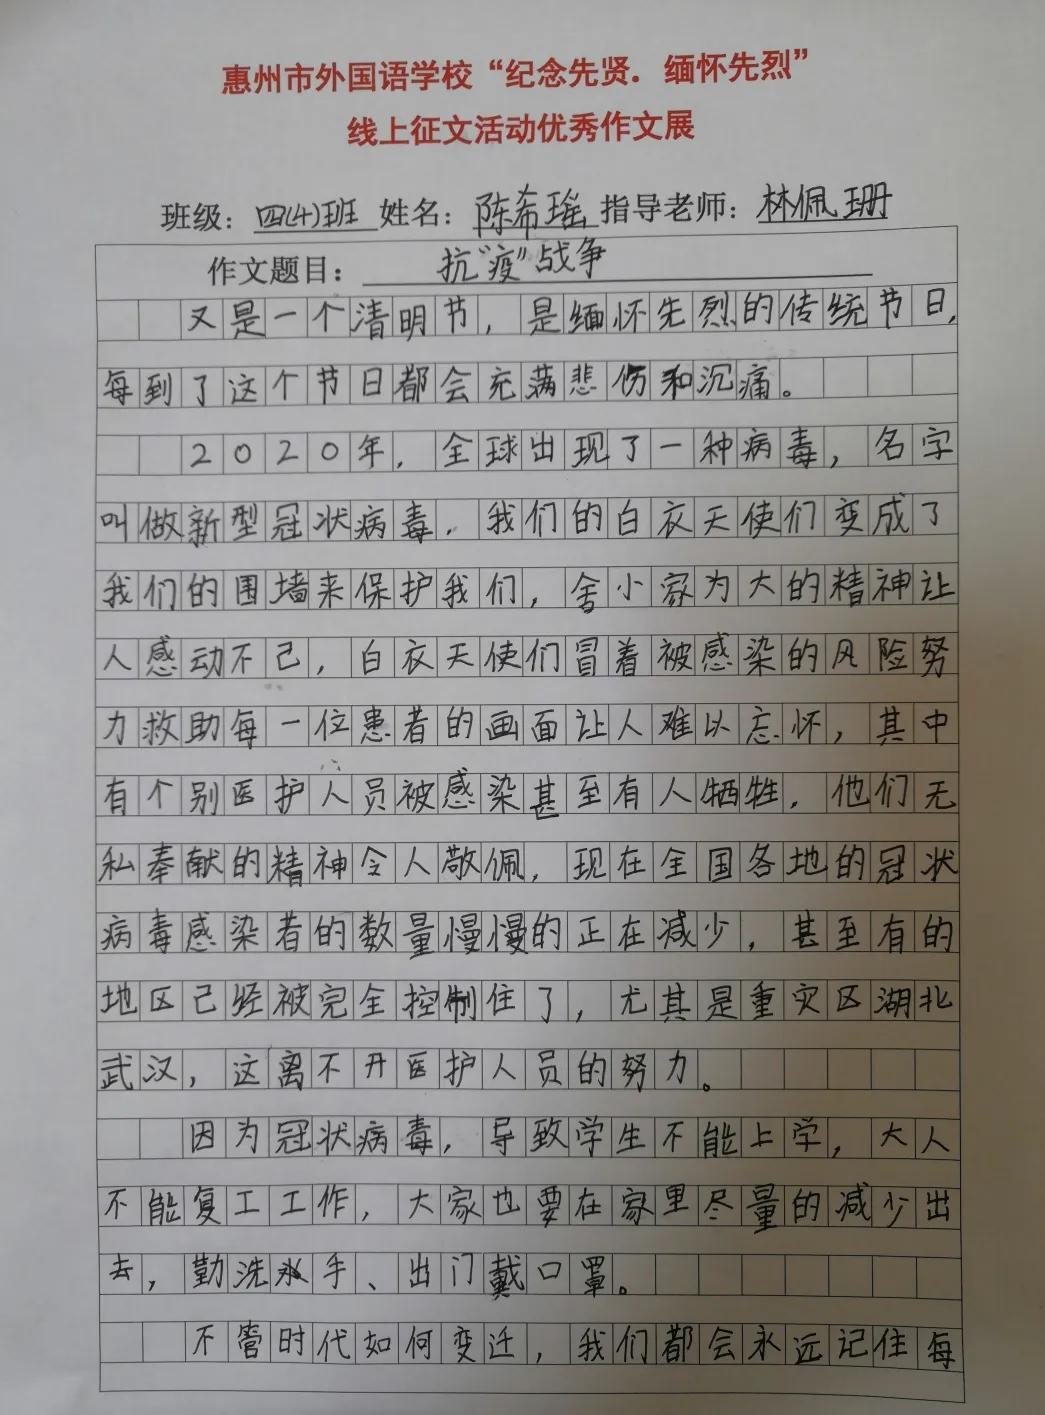 惠州市外国语学校“纪念先贤．缅怀先烈”
线上征文活动优秀作文展
班级：四(4)班 姓名：陈希瑶 指导老师：林佩珊
作文题目：抗“疫”战争
又是一个清明节，是缅怀先烈的传统节日，
每到了这个节日都会充满悲伤和沉痛。
2020年，全球出现了一种病毒，名字
叫做新型冠状病毒．我们的白衣天使们变成了
我们的围墙来保护我们，舍小家为大的精神让
人感动不己，白衣天使们冒着被感染的风险努
力救助每一位患者的画面让人难以忘怀，其中
有个别医护人员被感染甚至有人牺牲．他们无
私奉献的精神令人敬佩，现在全国各地的冠状
病毒感染者的数量慢慢的正在减少，甚至有的
地区己经被完全控制住了，尤其是重灾区湖北
武汉，这离不开医护人员的努力。
因为冠状病毒，导致学生不能上学，大人
不能复工工作，大家也要在家里尽量的减少出
去，勤洗手、出门戴口罩。
不管时代如何变迁，我们都会永远记住每